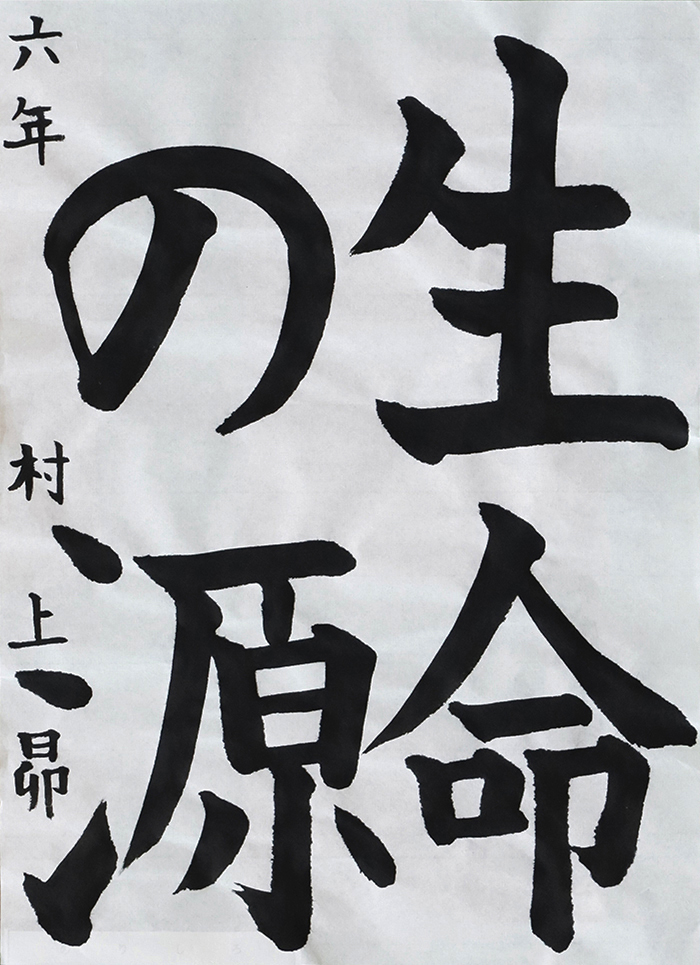 生命
の源
六年 村上昴